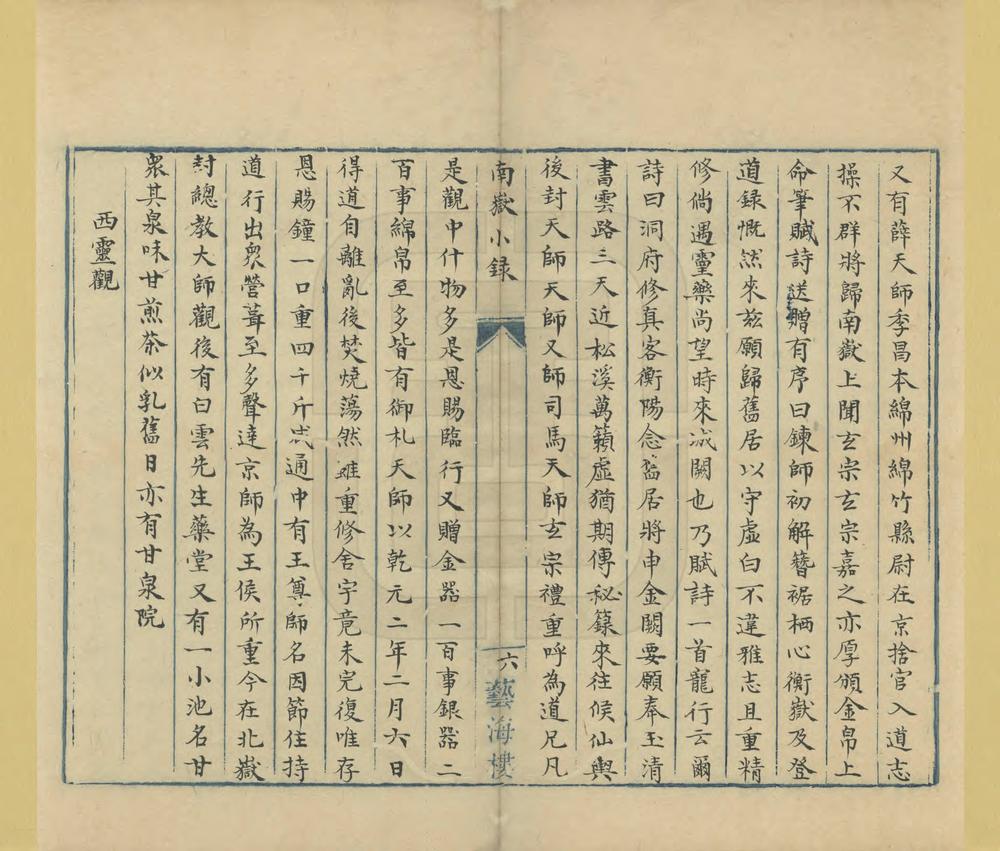 又有薛天師季昌本綿州綿竹縣尉在京捨官入道志
操不群將歸南嶽上聞玄宗玄宗嘉之亦厚頒金帛上
命筆賦詩送贈有序曰鍊師初解簪裾栖心衡嶽及登
道錄慨然來玆願歸舊居以守虛白不違雅志且重精
修倘遇靈藥尚望時來城闕也乃賦詩一首寵行云爾
詩曰洞府修真客衡陽念舊居將申金闕要願奉玉清
書雲路三天近松溪萬籟虛猶期傳秘籙來往候仙輿
後封天師天師又師司馬天師玄宗禮重呼為道兄凡
南嶽小録
六
藝海樓
是觀中什物多是恩賜臨行又贈金器一百事銀器二
百事綿帛至多皆有御札天師以乾元二年二月六日
得道自離亂後焚燒蕩然雖重修舍宇竟未完復唯存
恩賜鐘一口重四千斤咸通中有王尊師名因節住持
道行出衆營葺至多聲達京師為王侯所重今在北嶽
封總教大師觀後有白雲先生藥堂又有一小池名甘
泉其泉味甘煎茶似乳舊日亦有甘泉院
西靈觀